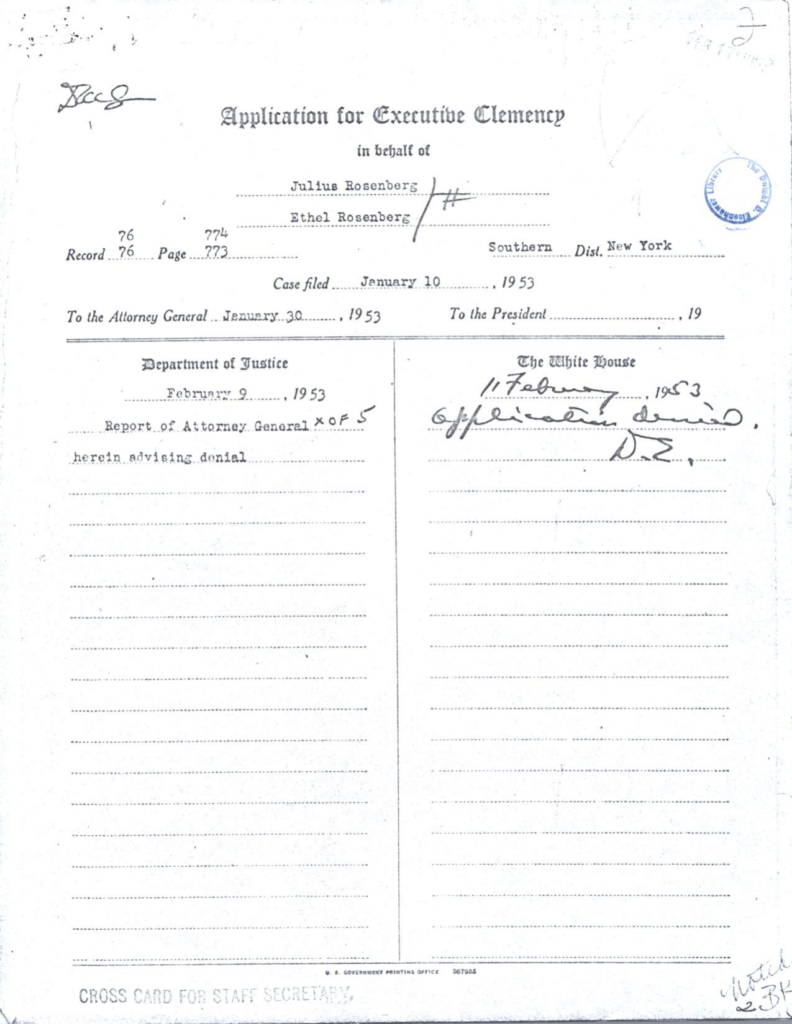 Application for Executive Clemency
in behalf of
Julius Rosenberg
Ethel Rosenberg #
76 774
Record 76 Page 773 Southern Dist. New York
Case filed January 10, 1953
To the Attorney General January 30, 1953 To the President , 19
Department of Justice
February 9, 1953
Report of Attorney General X OF 5
herein advising denial
The White House
11 February, 1953
Application denied.
D.E.
The Dwight D. Eisenhower Library
U. S. GOVERNMENT PRINTING OFFICE
CROSS CARD FOR STAFF SECRETARY.
Noted